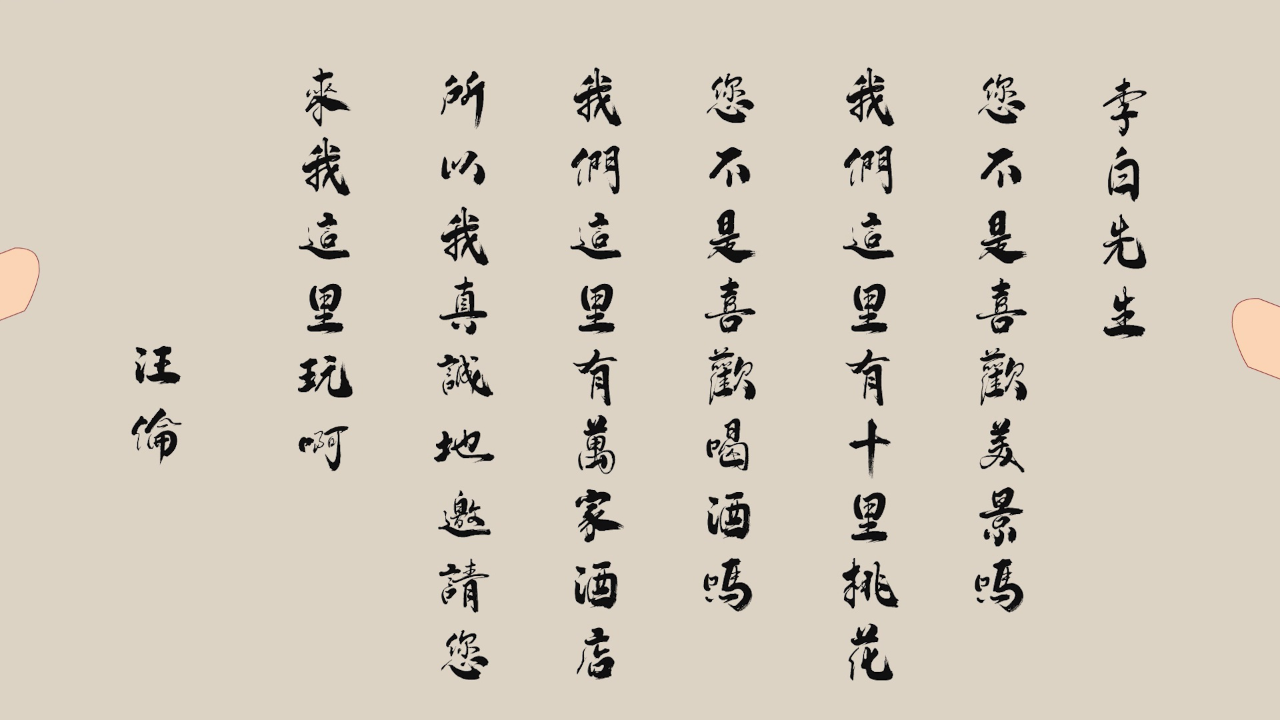 李白先生
您不是喜歡美景嗎
我們這里有十里挑花
您不是喜歡喝酒嗎
我們這里有萬家酒店
所以我真誠地邀請您
來我這里玩啊
汪倫